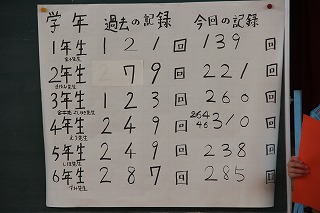 学年 過去の記録 今回の記録
1年生 121回 139回
2年生 279回 221回
3年生 123回 260回
4年生 249回 264 46 310回
5年生 249回 238回
6年生 287回 285回